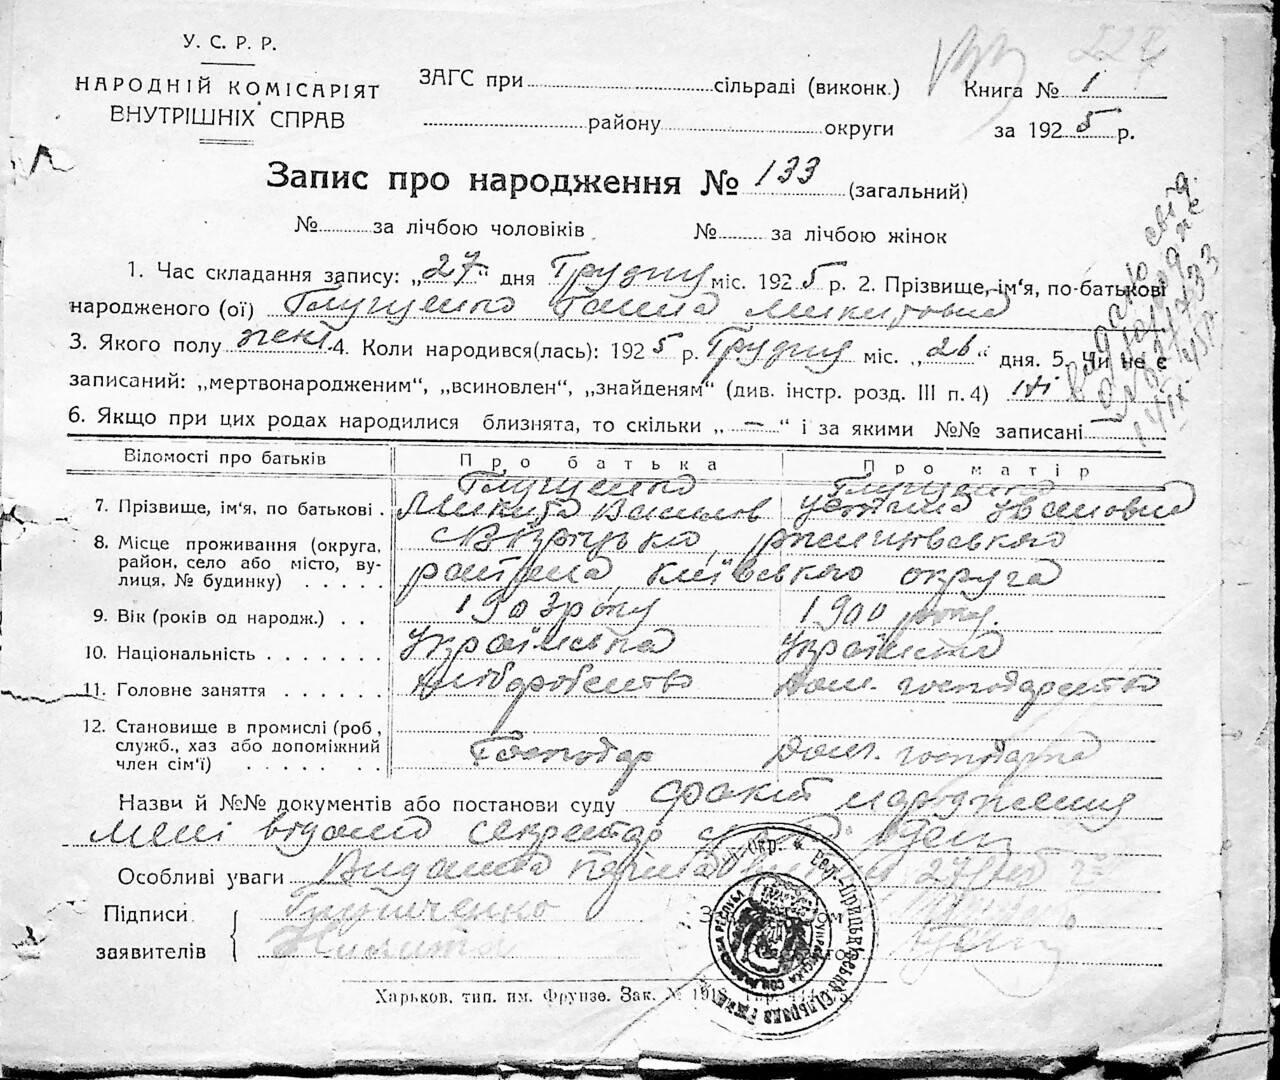 У. С. Р. Р.
НАРОДНІЙ КОМІСАРІЯТ
ВНУТРІШНІХ СПРАВ
ЗАГС при сільраді (виконк.)
району округи
Книга № 1
за 1925 р.
Запис про народження № 133 (загальний)
№ за лічбою чоловіків № за лічбою жінок
1. Час складання запису: „27“ дня Грудня міс. 1925 р. 2. Прізвище, ім‘я, по-батькові
народженого (ої) Глущенко Ганна Микитовна
3. Якого полу жен. 4. Коли народився(лась): 1925 р. Грудня міс. „26“ дня. 5. Чи не є
записаний: „мертвонародженим“, „всиновлен“, „знайденям“ (див. інстр. розд. III п. 4) ні
6. Якщо при цих родах народилися близнята, то скільки „—“ і за якими №№ записані
Відомості про батьків Про батька Про матір
7. Прізвище, ім‘я, по батькові . Глущенко Микита Васильов Глущенко Устина Ивановна
8. Місце проживання (округа, район, село або місто, вулиця, № будинку) . . . . района Київського округа
9. Вік (років од народж.) . . 1903 року 1900 року.
10. Національність . . . . . . . Українська Українска
11. Головне заняття . . . . . . Хліборобство Дом. господарство
12. Становище в промислі (роб., служб., хаз або допоміжний член сім‘ї) . . . . . . Господар Дом. господарка
Назви й №№ документів або постанови суду Факт народження
мені відомо секретар
Особливі уваги Видана
Підписи
заявителів
Харьков, тип. им. Фрунзе. Зак. №